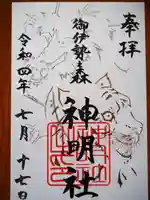 奉拝
御伊勢之森
神明社
令和四年 七月 十七日